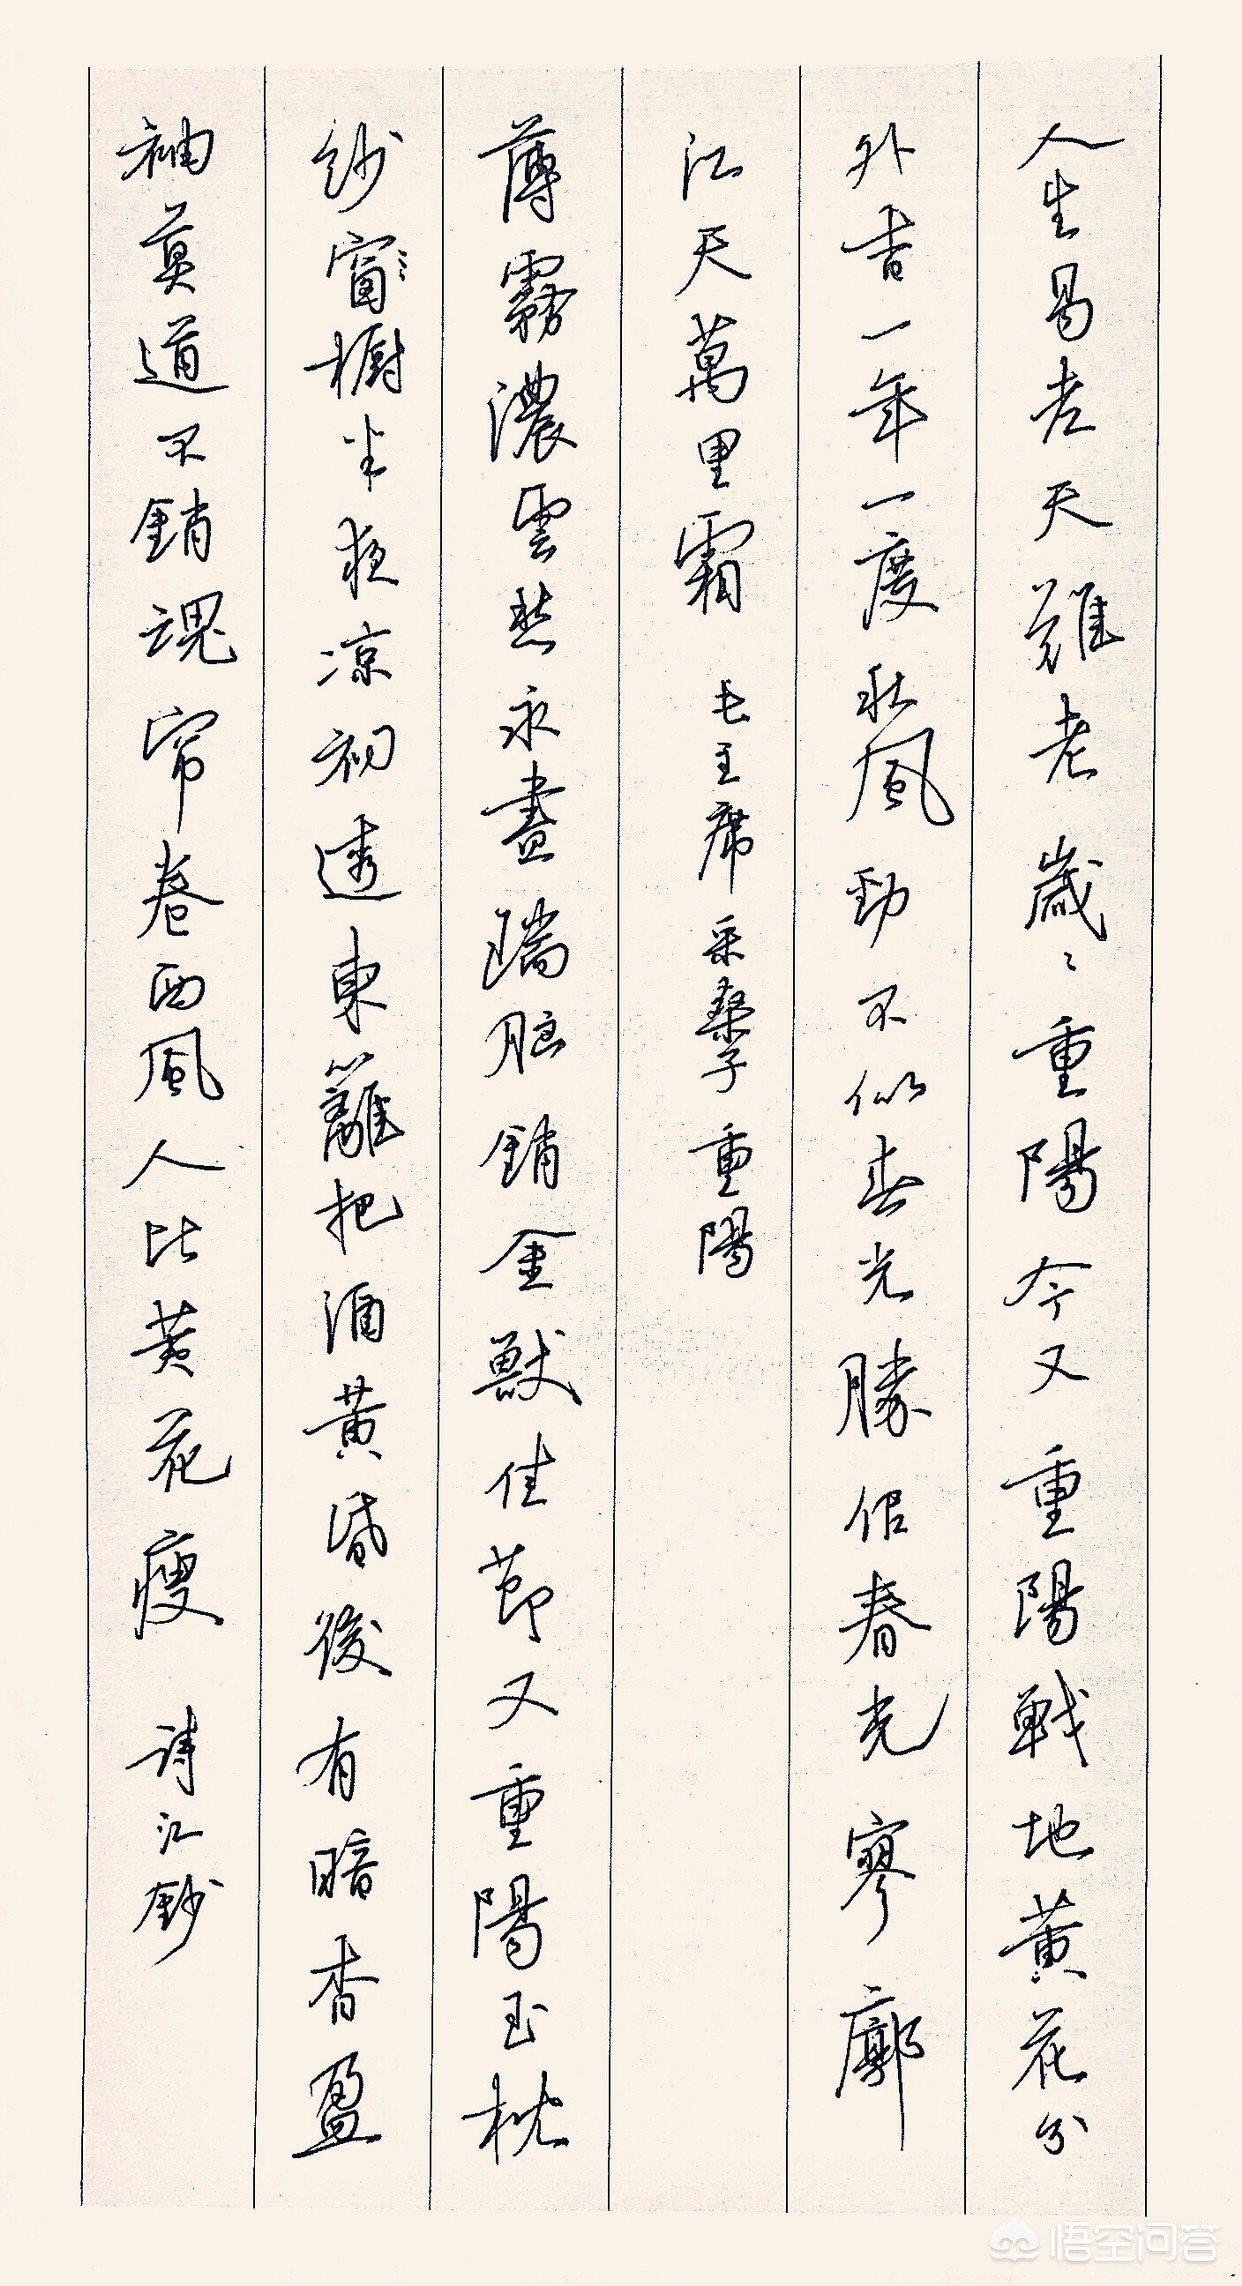 人生易老天難老歲〻重陽今又重陽戰地黃花分
外香一年一度秋風勁不似春光勝似春光寥廓
江天萬里霜 毛主席采桑子重陽
薄霧濃雲愁永晝瑞腦銷金獸佳節又重陽玉枕
紗窗橱半夜凉初透東籬把酒黃昏後有暗香盈
袖莫道不銷魂帘卷西風人比黃花瘦 詩汇鈔
悟空问答